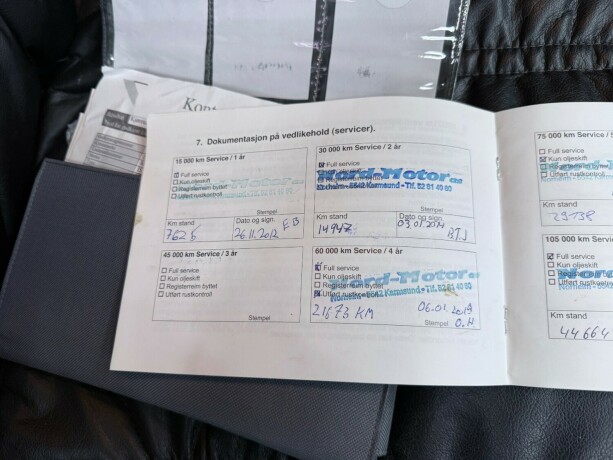 Kon
7. Dokumentasjon på vedlikehold (servicer).
15 000 km Service / 1 år
Full service
Kun oljeskift
Registerreim byttet
Utført rustkontroll
Stempel
Km stand
Dato og sign.
7625
26.11.2012 EB
30 000 km Service / 2 år
Full service
Nord-Motor AS
Norheim - 5542 Karmsund - Tlf. 52 81 40 80
Stempel
Km stand
Dato og sign.
14947
03.01.2014
45 000 km Service / 3 år
Full service
Kun oljeskift
Registerreim byttet
Utført rustkontroll
Stempel
60 000 km Service / 4 år
Full service
Kun oljeskift
Registerreim byttet
Utført rustkontroll
Nord-Motor AS
Norheim - 5542 Karmsund - Tlf. 52 81 40 80
21673 KM
06.01.
Stempel
O.H
75 000 km Service /
Full service
Kun oljeskift
Registerrei
Utført rustkontroll
Km stand
105 000 km Service
Full service
Kun oljeskift
Norheim - 5542
Km stand
44664